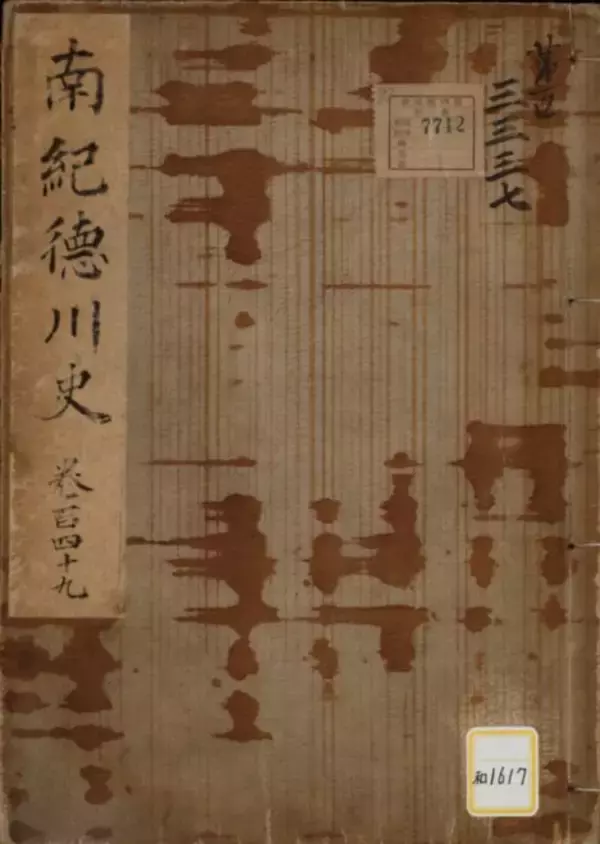 南紀徳川史
巻百四十九
7712
三三三七
和1617